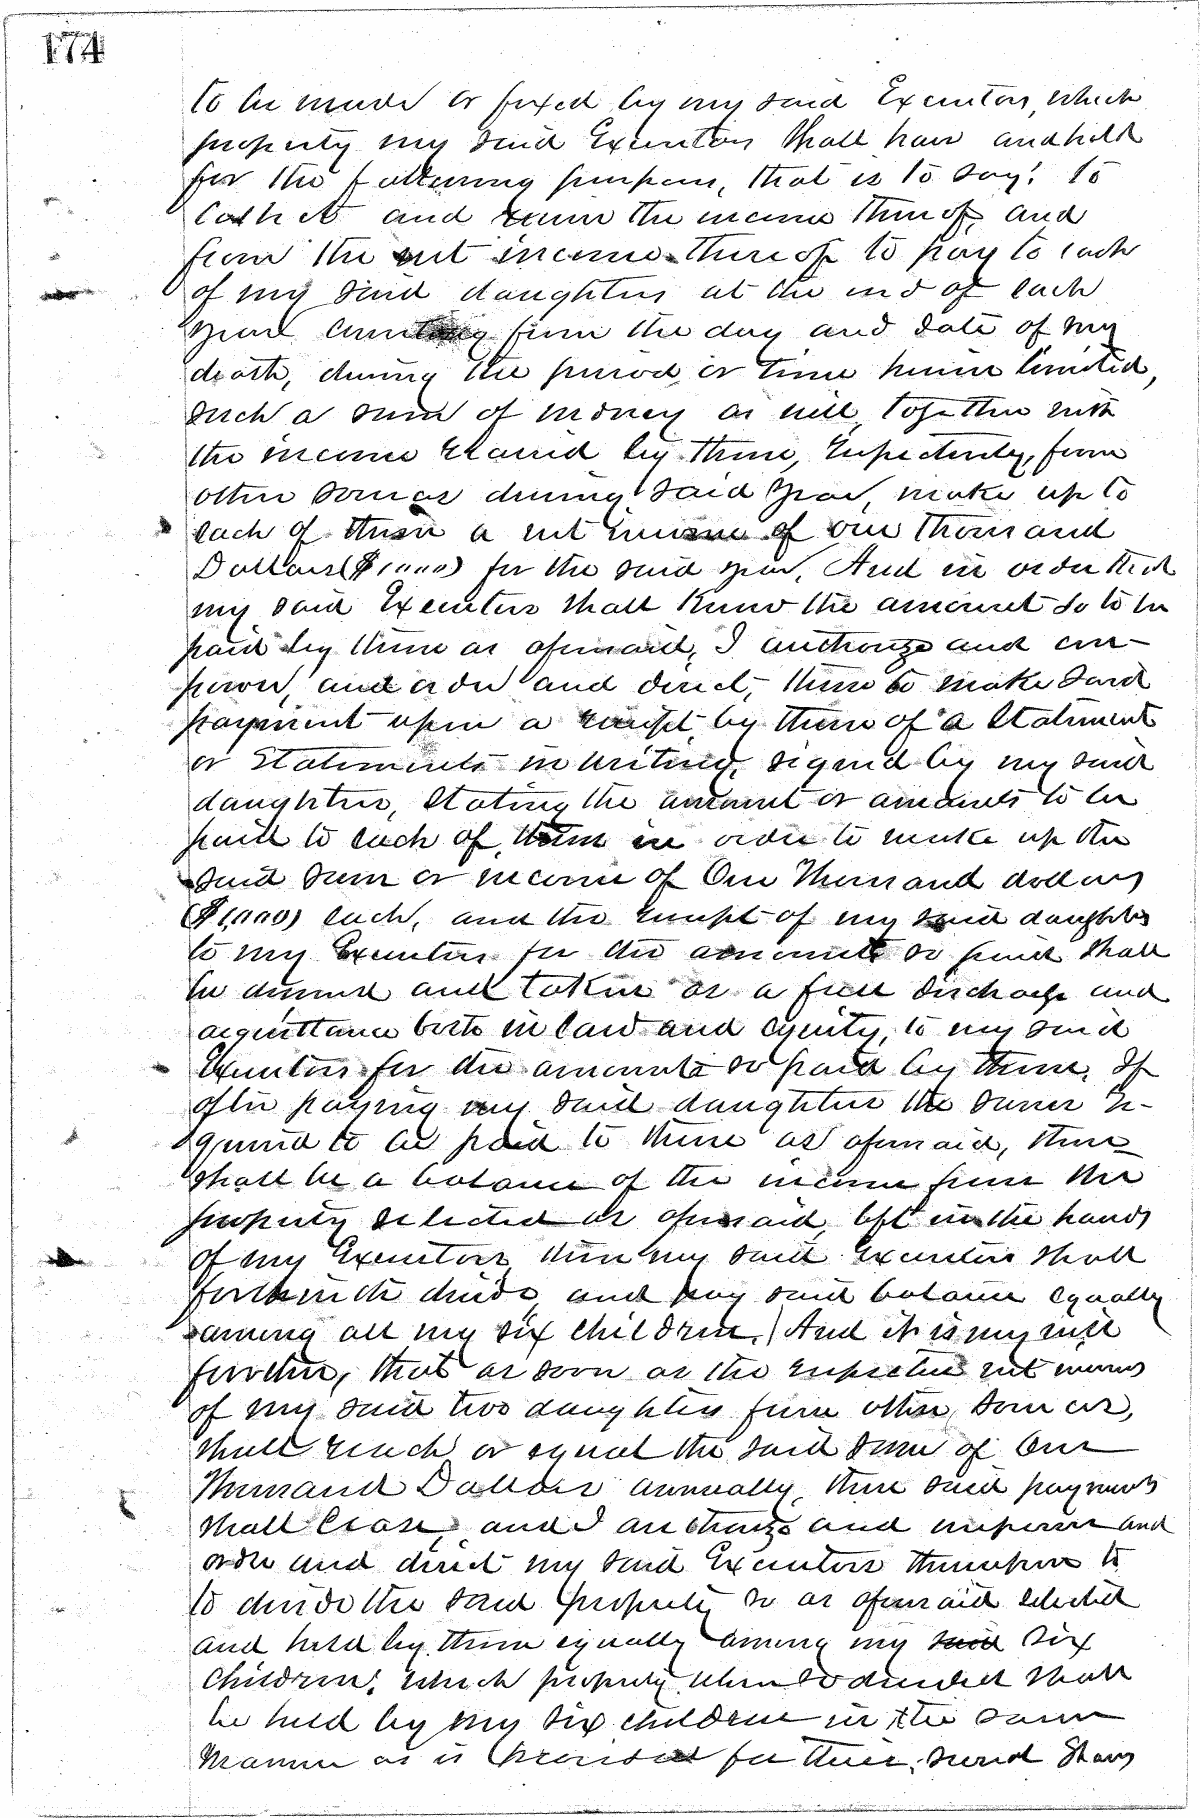 174
to be made or fixed by my said Executors, which
property my said Executors shall have and hold
for the following purposes, that is to say: to
Collect and receive the income thereof, and
from the net income thereof to pay to each
of my said daughters at the end of each
year counting from the day and date of my
death, during the period or time herein limited,
such a sum of money as will, together with
the income received by them, respectively, from
other sources during said year, make up to
each of them a net income of one thousand
Dollars ($1000) for the said year. And in order that
my said Executors shall know the amount so to be
paid by them as aforesaid, I authorize and em-
power, and order and direct, them to make said
payment upon a receipt by them of a Statement
or Statements in writing, signed by my said
daughters, stating the amount or amounts to be
paid to each of them in order to make up the
said sum or income of One Thousand dollars
($1,000) each, and the receipt of my said daughters
to my Executors for the amounts so paid shall
be deemed and taken as a full discharge and
acquittance both in law and equity, to my said
Executors for the amounts so paid by them. If
after paying my said daughters the sums re-
quired to be paid to them as aforesaid, there
shall be a balance of the income from the
property selected as aforesaid, left in the hands
of my Executors, then my said Executors shall
forthwith divide and pay said balance equally
among all my six children. And it is my will
further, that as soon as the respective net incomes
of my said two daughters from other sources,
shall reach or equal the said sum of One
Thousand Dollars annually, then said payments
shall cease, and I authorize and empower and
order and direct my said Executors thereupon to
to divide the said property so as aforesaid selected
and held by them equally among my said six
children, which property when so divided shall
be held by my six children in the same
manner as is provided for their several shares